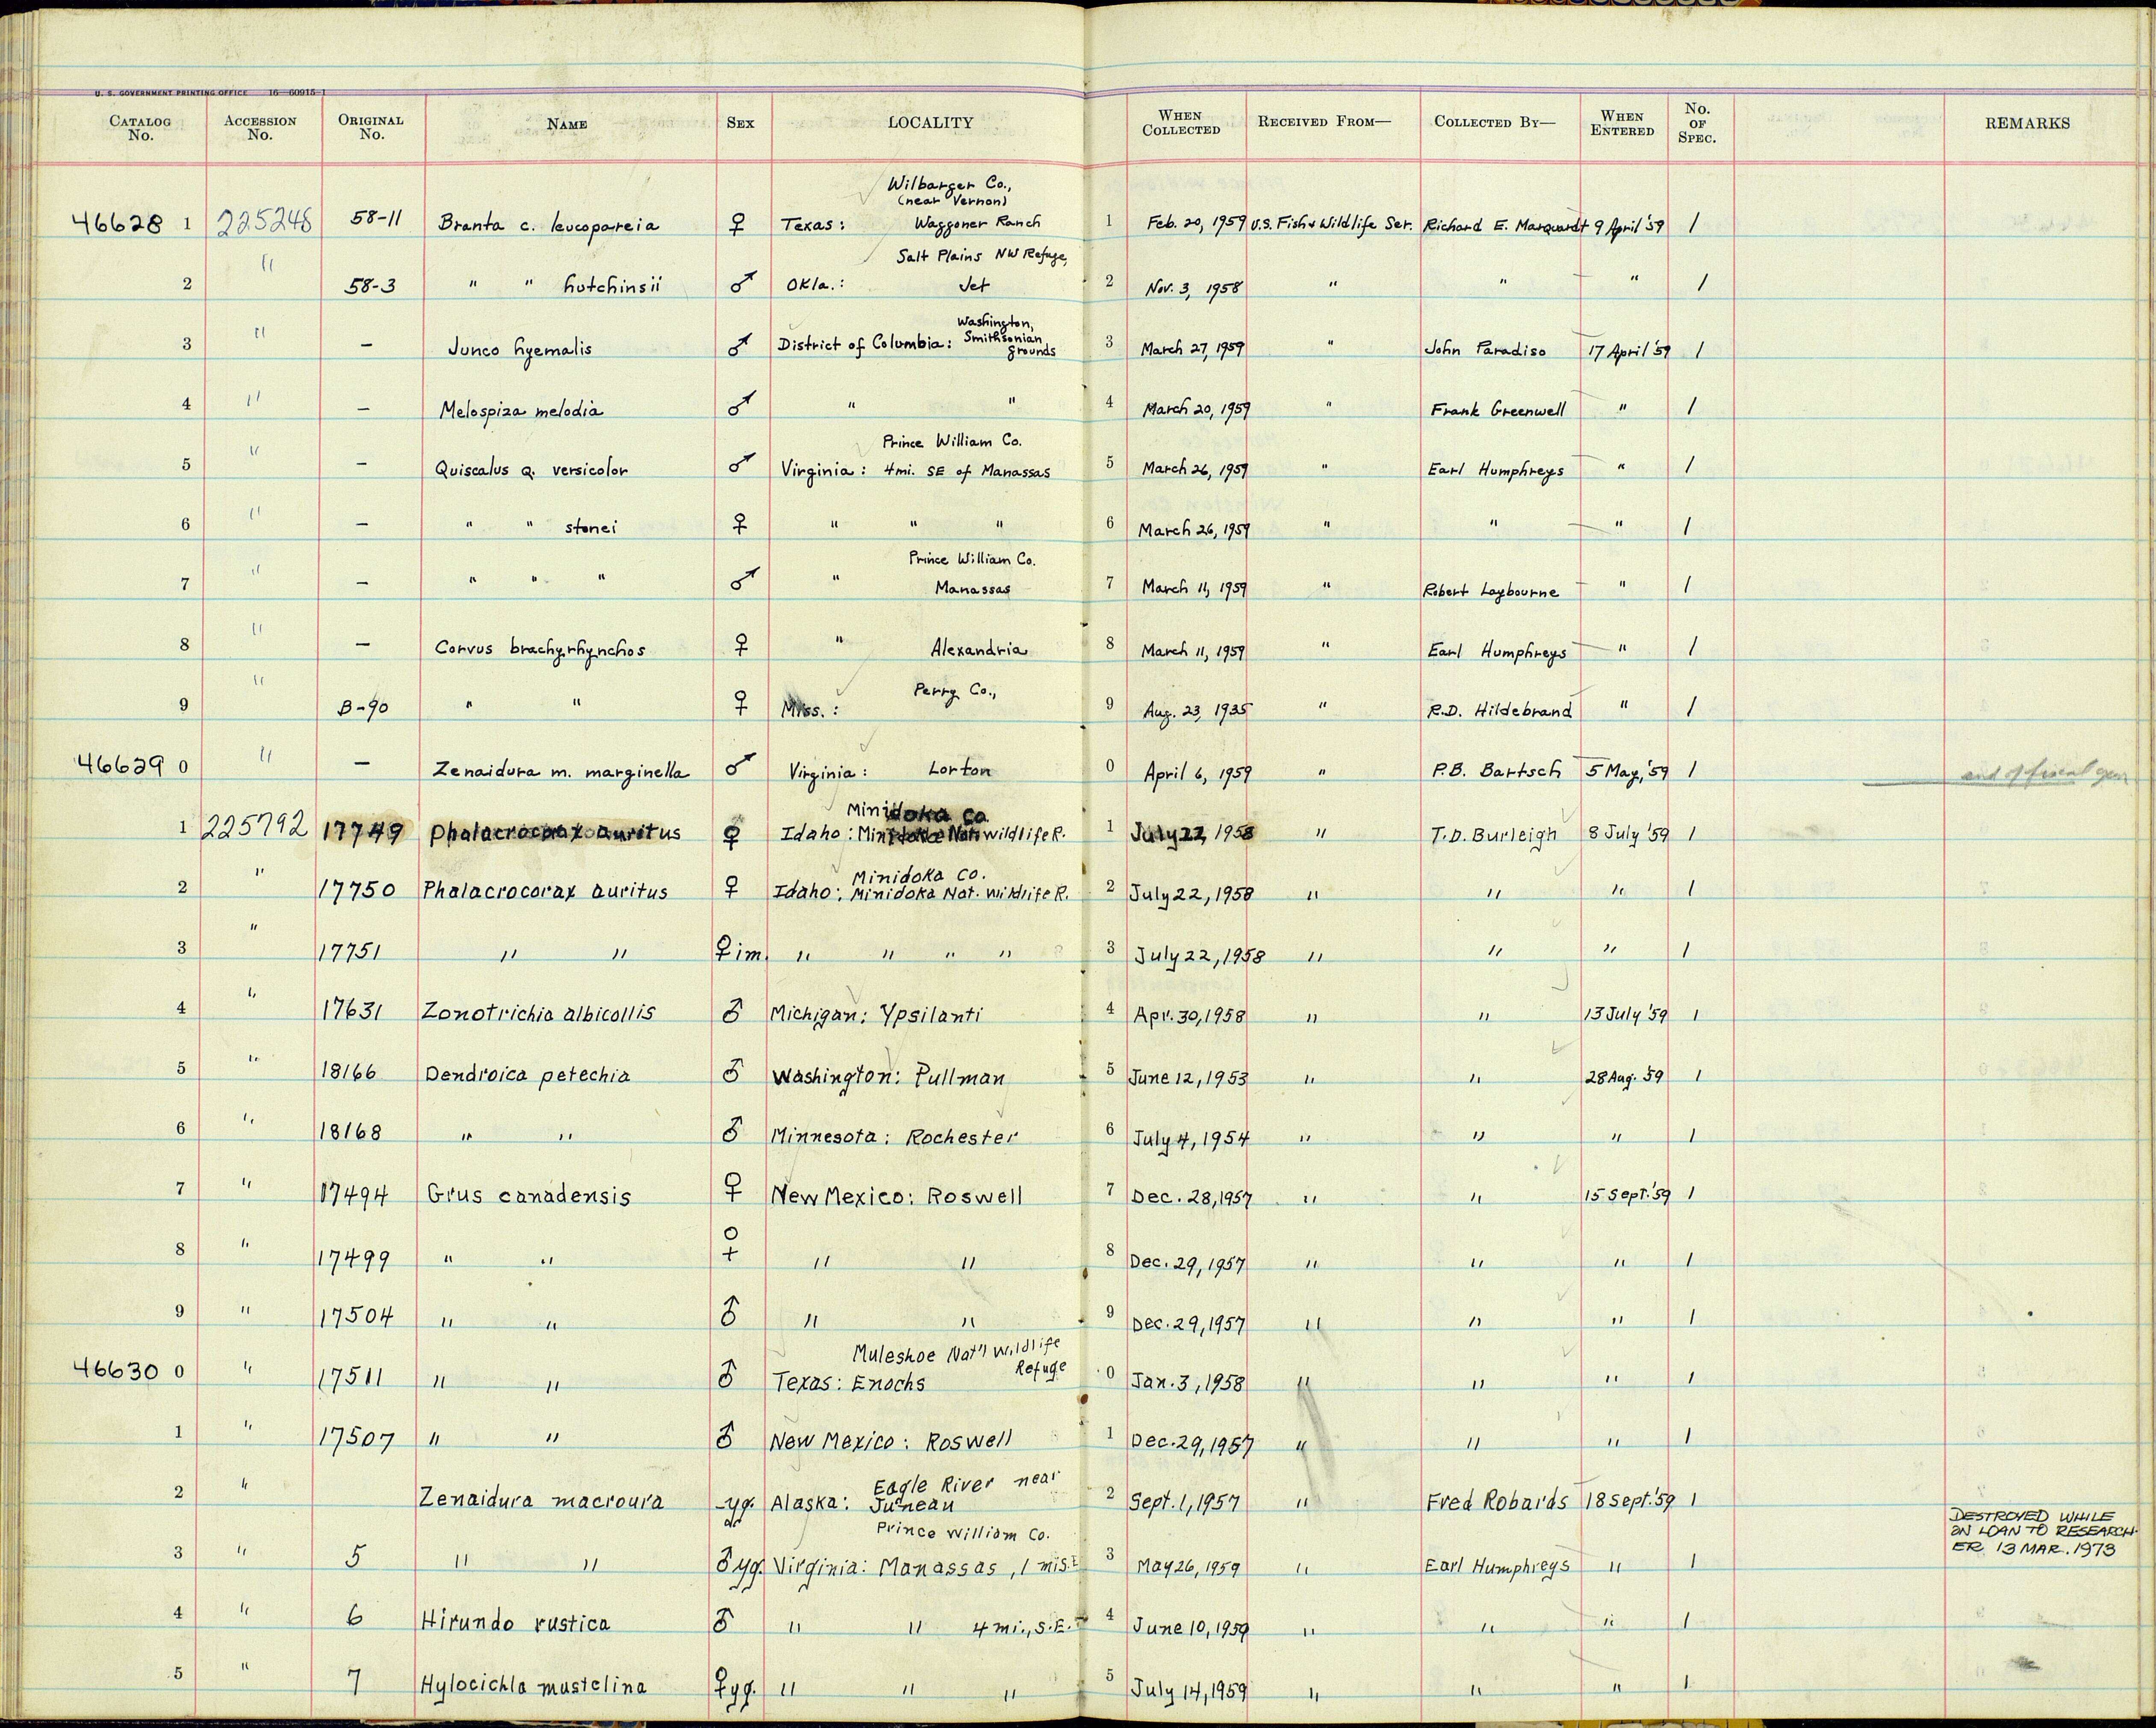 U. S. GOVERNMENT PRINTING OFFICE 16—60915-1
CATALOG No. ACCESSION No. ORIGINAL No. NAME SEX LOCALITY WHEN COLLECTED RECEIVED FROM— COLLECTED BY— WHEN ENTERED No. OF SPEC. REMARKS
Wilbarger Co.,
(near Vernon)
46628 1 225248 58-11 Branta c. leucopareia ♀ Texas: Waggoner Ranch 1 Feb. 20, 1959 U.S. Fish & Wildlife Ser. Richard E. Marquardt 9 April '59 1
Salt Plains NW Refuge,
2 " 58-3 " " hutchinsii ♂ Okla.: Jet 2 Nov. 3, 1958 " " " 1
Washington,
3 " — Junco hyemalis ♂ District of Columbia: Smithsonian grounds 3 March 27, 1959 " John Paradiso 17 April '59 1
4 " — Melospiza melodia ♂ " " 4 March 20, 1959 " Frank Greenwell " 1
Prince William Co.
5 " — Quiscalus q. versicolor ♂ Virginia: 4mi. SE of Manassas 5 March 26, 1959 " Earl Humphreys " 1
6 " — " " stonei ♀ " " " 6 March 26, 1959 " " " 1
Prince William Co.
7 " — " " " ♂ " Manassas 7 March 11, 1959 " Robert Laybourne " 1
8 " — Corvus brachyrhynchos ♀ " Alexandria 8 March 11, 1959 " Earl Humphreys " 1
Perry Co.,
9 " B-90 " " ♀ Miss.: 9 Aug. 23, 1935 " R.D. Hildebrand " 1
46629 0 " — Zenaidura m. marginella ♂ Virginia: Lorton 0 April 6, 1959 " P.B. Bartsch 5 May, '59 1 end of fiscal year
Minidoka Co
1 225792 17749 Phalacrocorax auritus ♀ Idaho: Minidoka Nat. wildlife R. 1 July 22, 1958 " T.D. Burleigh 8 July '59 1
Minidoka Co.
2 " 17750 Phalacrocorax auritus ♀ Idaho: Minidoka Nat. Wildlife R. 2 July 22, 1958 " " " 1
3 " 17751 " " ♀ im. " " " " 3 July 22, 1958 " " " 1
4 " 17631 Zonotrichia albicollis ♂ Michigan: Ypsilanti 4 Apr. 30, 1958 " " 13 July '59 1
5 " 18166 Dendroica petechia ♂ Washington: Pullman 5 June 12, 1953 " " 28 Aug. '59 1
6 " 18168 " " ♂ Minnesota: Rochester 6 July 4, 1954 " " " 1
7 " 17494 Grus canadensis ♀ New Mexico: Roswell 7 Dec. 28, 1957 " " 15 Sept. '59 1
8 " 17499 " " ♀ " " 8 Dec. 29, 1957 " " " 1
9 " 17504 " " ♂ " " 9 Dec. 29, 1957 " " " 1
Muleshoe Nat'l Wildlife Refuge
46630 0 " 17511 " " ♂ Texas: Enochs 0 Jan. 3, 1958 " " " 1
1 " 17507 " " ♂ New Mexico: Roswell 1 Dec. 29, 1957 " " " 1
Eagle River near
2 " Zenaidura macroura -yg. Alaska: Juneau 2 Sept. 1, 1957 " Fred Robards 18 Sept. '59 1
Prince William Co.
3 " 5 " " ♂ yg. Virginia: Manassas, 1 mi S.E 3 May 26, 1959 " Earl Humphreys " 1 DESTROYED WHILE
ON LOAN TO RESEARCH-
ER 13 MAR. 1973
4 " 6 Hirundo rustica ♂ " " 4 mi., S.E. 4 June 10, 1959 " " " 1
5 " 7 Hylocichla mustelina ♀ yg. " " " 5 July 14, 1959 " " " 1